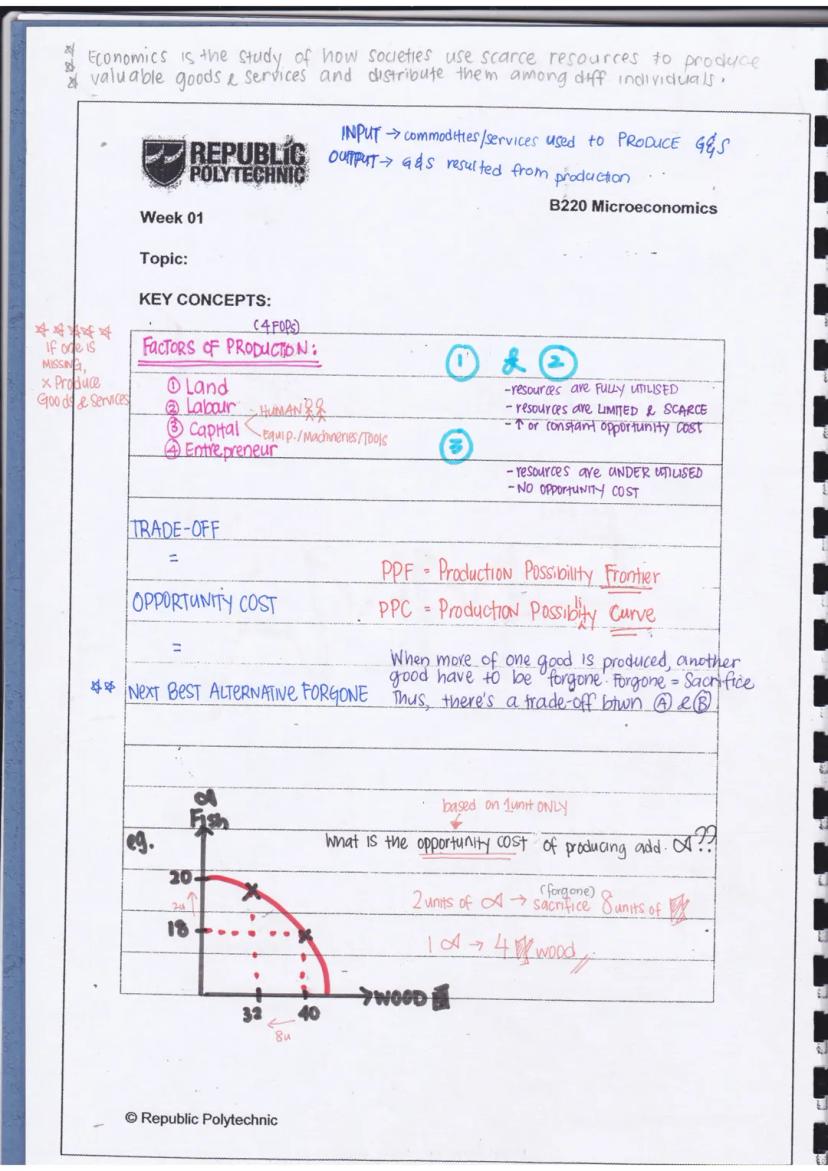 Economics is the study of how societies use scarce resources to produce
valuable goods & services and distribute them among diff individuals.
INPUT → commodities/services used to PRODUCE G&S
OUTPUT → G&S resulted from production
REPUBLIC
POLYTECHNIC
B220 Microeconomics
Week 01
Topic:
KEY CONCEPTS:
(4 FOPs)
If one is
MISSING,
x Produce
Goods & Services
FACTORS OF PRODUCTION:
① Land
② Labour
③ Capital
④ Entrepreneur
HUMAN
Equip./Machineries/Tools
① & ②
- resources are FULLY UTILISED
- resources are LIMITED & SCARCE
- ↑ or constant opportunity cost
③
- resources are UNDER UTILISED
- NO OPPORTUNITY COST
TRADE-OFF
=
OPPORTUNITY COST
=
NEXT BEST ALTERNATIVE FORGONE
PPF = Production Possibility Frontier
PPC = Production Possibility Curve
When more of one good is produced, another
good have to be forgone. Forgone = Sacrifice
Thus, there's a trade-off btwn Ⓐ & Ⓑ
based on 1 unit ONLY
What is the opportunity cost of producing add. ??
eg.
Fish
20
2u
18
32
40
8u
WOOD
(forgone)
2 units of → sacrifice 8 units of
1 → 4 wood
© Republic Polytechnic